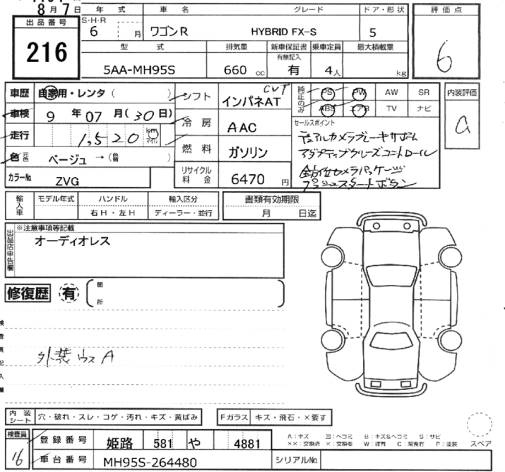 8月7日
年式 車名 グレード ドア・形状 評価点
出品番号 S・H・R 6月 ワゴンR HYBRID FX-S 5 6
216
型式 排気量 新車保証書 乗車定員 最大積載量
有無記入
5AA-MH95S 660cc 有 4人 kg
車歴 自家用・レンタ( ) シフト CVT インパネAT 純正のみ PS PW AW SR 内装評価
車検 9年07月(30日) ABS エアB TV ナビ a
冷房 AAC
走行 1,520 km
セールスポイント
デュアルカメラブレーキサポート
燃料 ガソリン アダプティブクルーズコントロール
色 ベージュ→(替 )
全方位カメラパッケージ
カラーNo ZVG リサイクル料金 6470円 プッシュスタートボタン
輸入車 モデル年式 ハンドル 輸入区分 書類有効期限
右H・左H ディーラー・並行 月 日迄
出品店申告欄 ※注意事項等記載
オーディオレス
修復歴 有 箇所
外装ウスA
内装シート 穴・破れ・スレ・コゲ・汚れ・キズ・黄ばみ Fガラス キズ・飛石・×要す
検査員 16 登録番号 姫路 581 や 4881
車台番号 MH95S-264480 シリアルNo
スペア